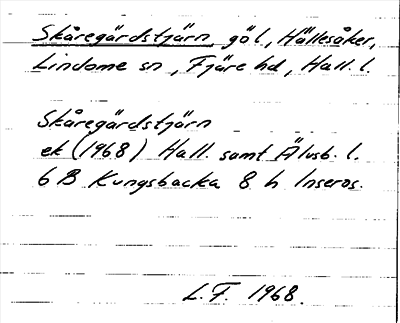 Skåregärdstjärn göl, Hällesåker,
Lindome sn, Fjäre hd, Hall. l.
Skåregärdstjärn
ek (1968) Hall. samt Älvsb. l.
6 B Kungsbacka 8 h Inseros.
L.F. 1968.